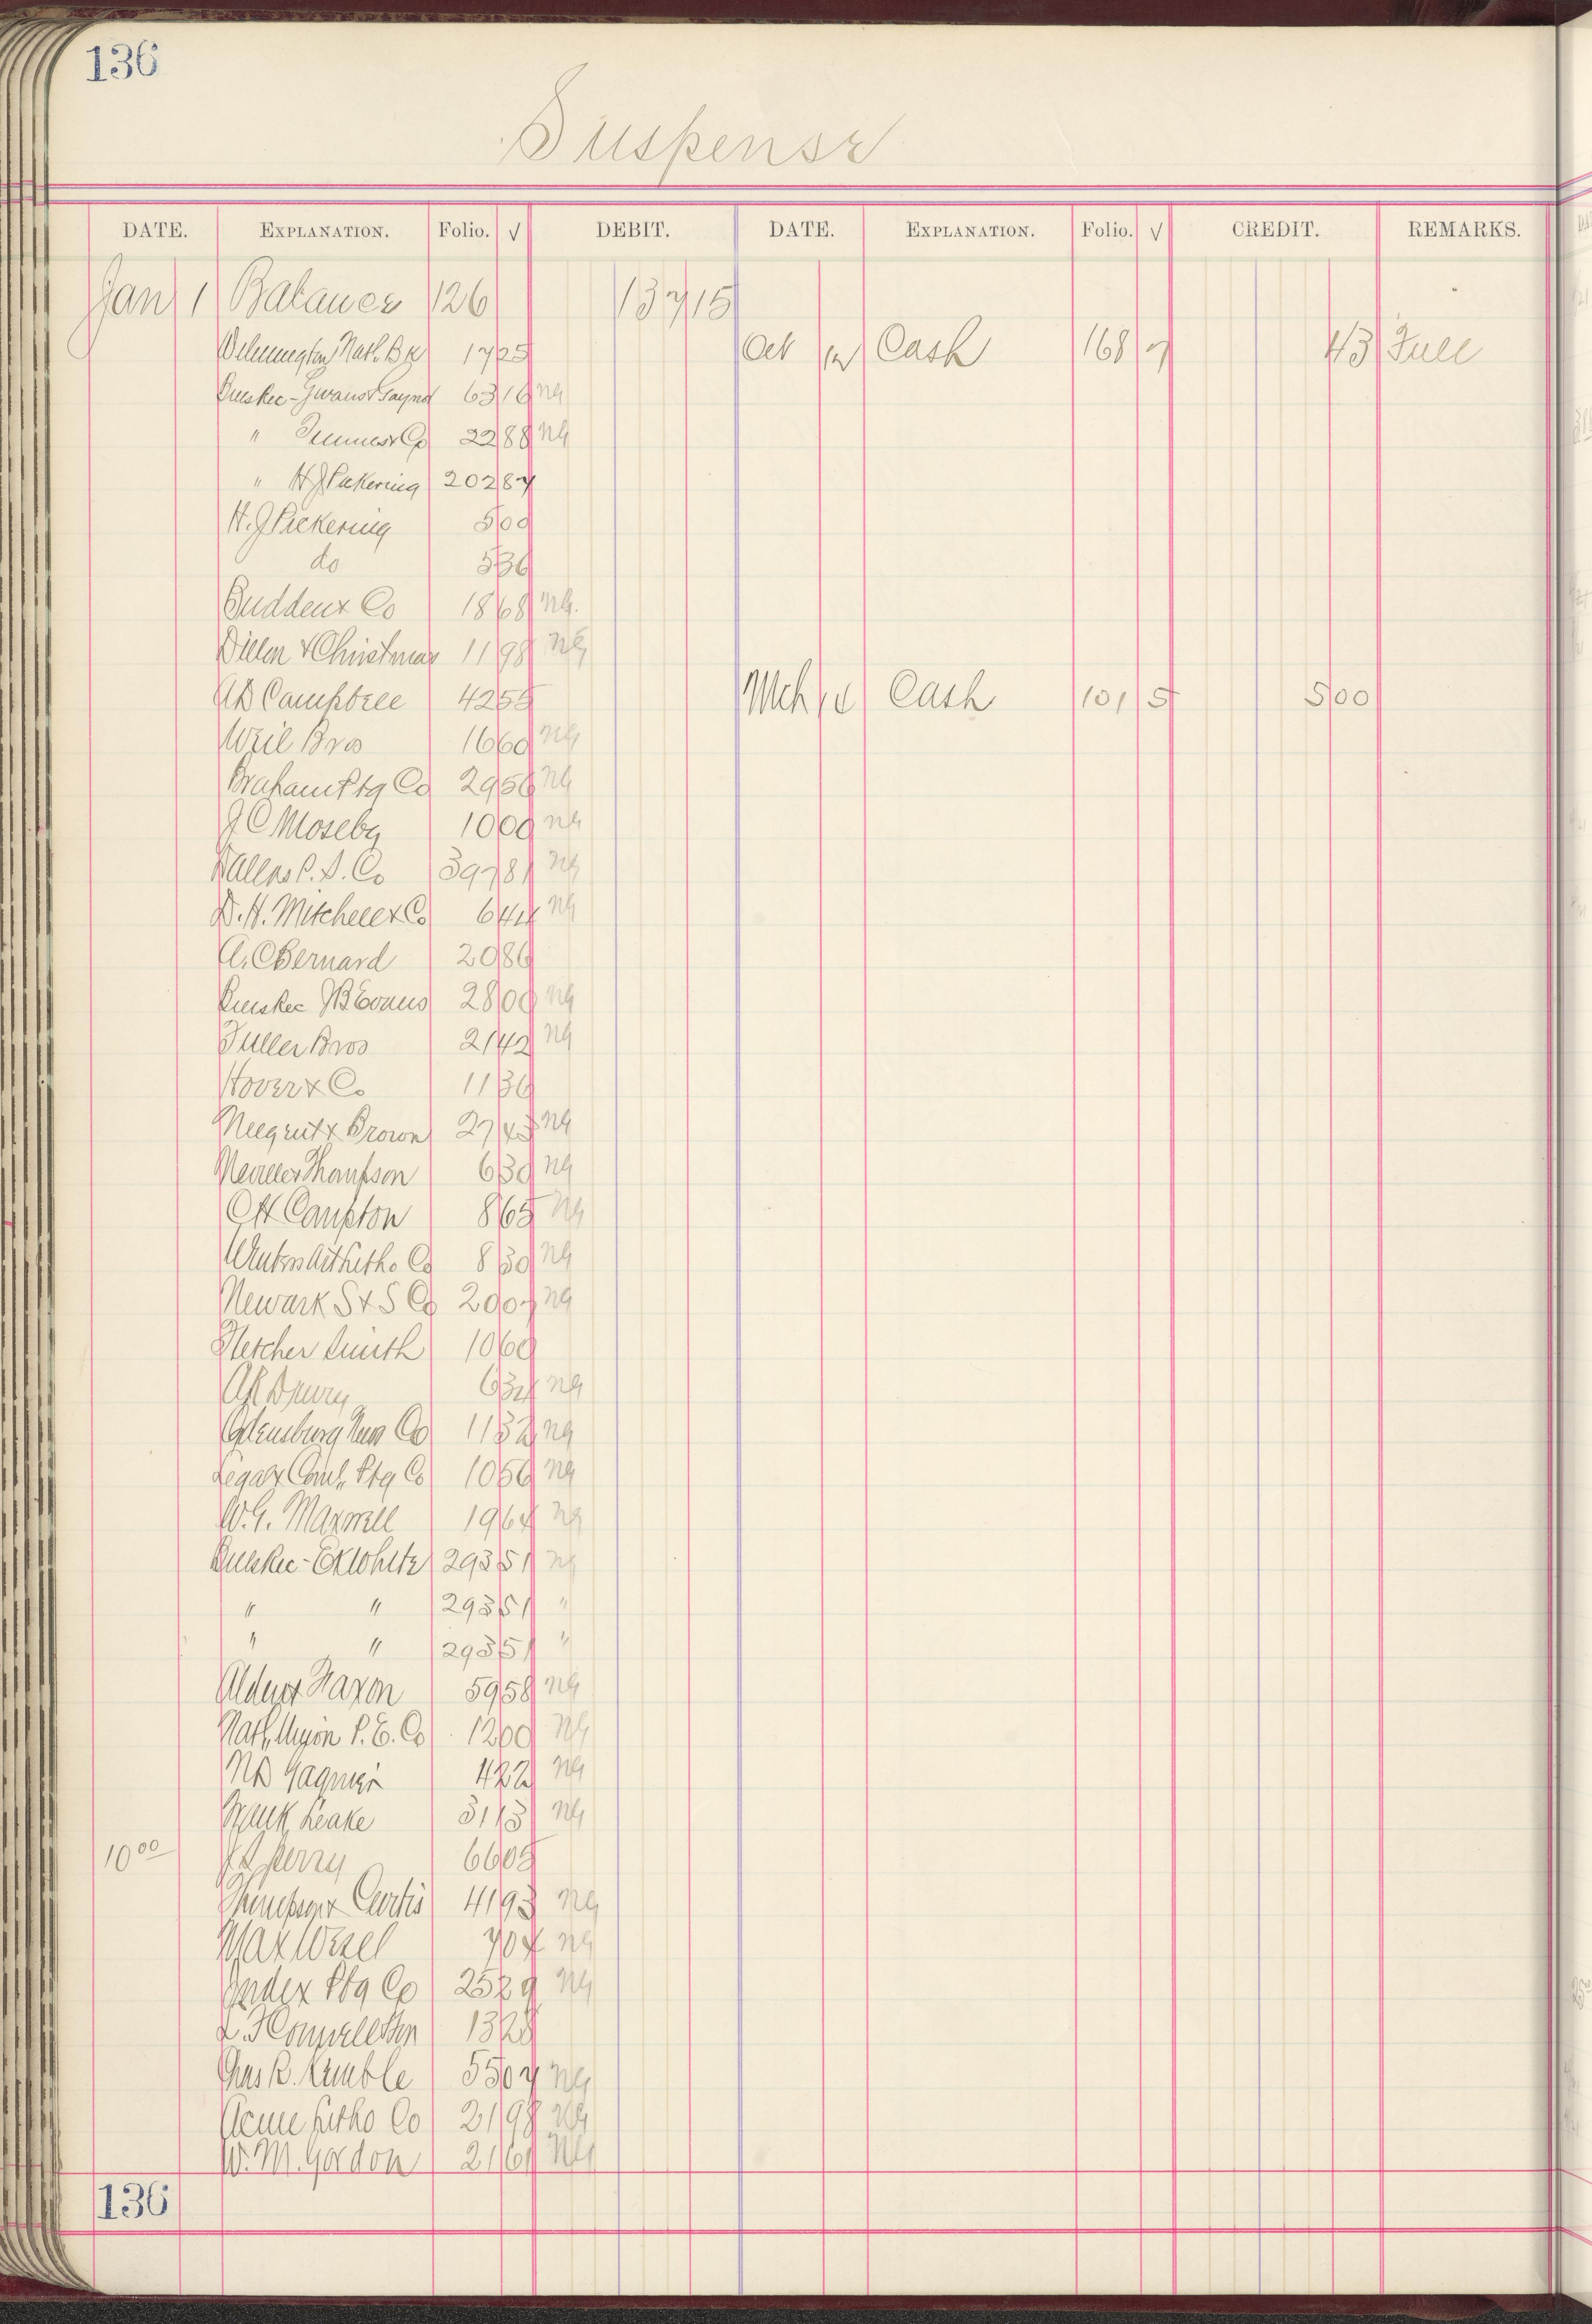 136
Suspense
DATE. EXPLANATION. Folio. √ DEBIT. DATE. EXPLANATION. Folio. √ CREDIT. REMARKS.
Jan 1 Balance 126 13715
Wilmington Natl. Bk 1725 Oct Cash 168 7 43 Full
6316 NG
" & Co 2288 NG
" H J Pickering 20287
H. J Pickering 500
do 536
Sudden & Co 1868 NG.
Dillon & Christmas 1198 NG
4255 Mch Cash 101 5 500
Weil Bros 1660 NG
Ptg Co 2956 NG
J C Moseby 1000 NG
Co 39781 NG
D. H. Mitchell & Co 644 NG
A. C Bernard 2086
J B Evans 2800 NG
Fuller Bros 2142 NG
Hover & Co 1136
& Brown 2743 NG
Thompson 630 NG
C H Compton 865 NG
Litho. Co 830 NG
Newark S & S Co 2907 NG
Fletcher Smith 1060
634 NG
Co 1132 NG
Legal & Coml. Ptg Co 1056 NG
W. G. Maxwell 1964 NG
29351 NG
" " 29351 "
" " 29351 "
Alden & Faxon 5958 NG
Natl. Union P. E. Co 1200 NG
422 NG
Leake 3113 NG
10 00 Perry 6605
Curtis 4193 NG
Max Wesel 704 NG
Index Ptg Co 2529 NG
1328
Chas R. Kimble 5507 NG
Acme Litho Co 2198 NG
W. M. Gordon 2161 NG
136